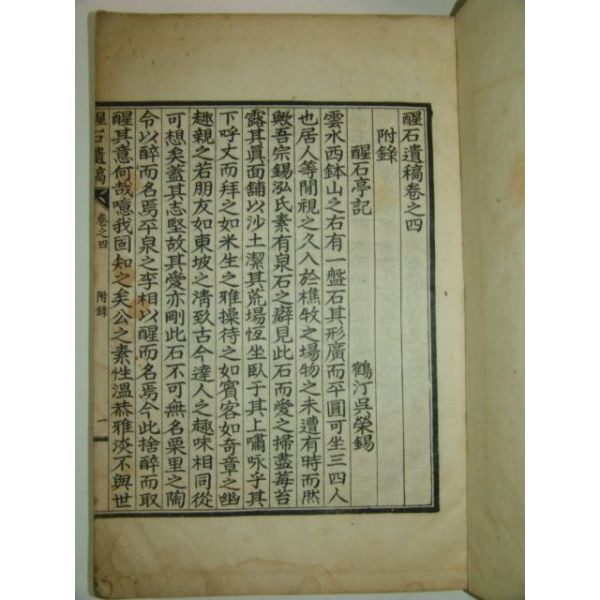 醒石遺稿卷之四
附錄
醒石亭記
鶴汀吳榮錫
雲水西鉢山之右有一盤石其形廣而平圓可坐三四人
也居人等閒視之久入於樵牧之場物之未遭有時而然
歟吾宗錫泓氏素有泉石之癖見此石而愛之掃盡莓苔
露其眞面舖以沙土潔其荒場恆坐臥于其上嘯咏乎其
下呼丈而拜之如米生之雅操待之如賓客如奇章之幽
趣親之若朋友如東坡之淸致古今達人之趣味相同從
可想矣蓋其志堅故其愛亦剛此石不可無名栗里之陶
令以醉而名焉平泉之李相以醒而名焉今此捨醉而取
醒其意何哉噫我固知之矣公之素性溫恭雅淡不與世
醒石遺稿
卷之四
附錄
一